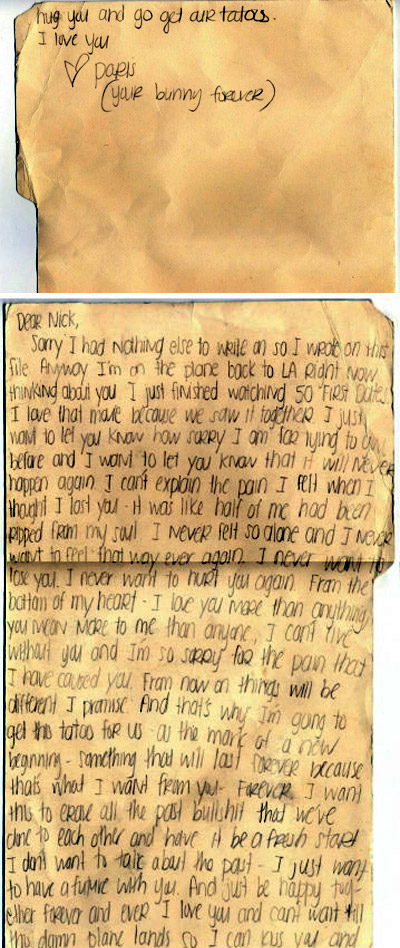 hug you and go get our tatoos.
I love you
♡ Paris
(your bunny forever)
Dear Nick,
Sorry I had nothing else to write on so I wrote on this
file. Anyway I'm on the plane back to LA right now
thinking about you I just finished watching 50 First Dates.
I love that movie because we saw it together. I just
want to let you know how sorry I am for lying to you
before and I want to let you know that it will Never
happen again. I can't explain the pain I felt when I
thought I lost you - it was like half of me had been
ripped from my soul. I never felt so alone and I never
want to feel that way ever again. I never want to
lose you. I never want to hurt you again. From the
bottom of my heart - I love you more than anything,
you mean more to me than anyone, I can't live
without you and I'm so sorry for the pain that
I have caused you. From now on things will be
different I promise. And that's why I'm going to
get this tatoo for us - as the mark of a new
beginning - something that will last forever because
that's what I want from you - Forever. I want
this to erase all the past bullshit that we've
done to each other and have it be a fresh start
I don't want to talk about the past - I just want
to have a future with you. And just be happy tog-
ether forever and ever. I love you and cant wait till
this damn plane lands so I can kiss you and